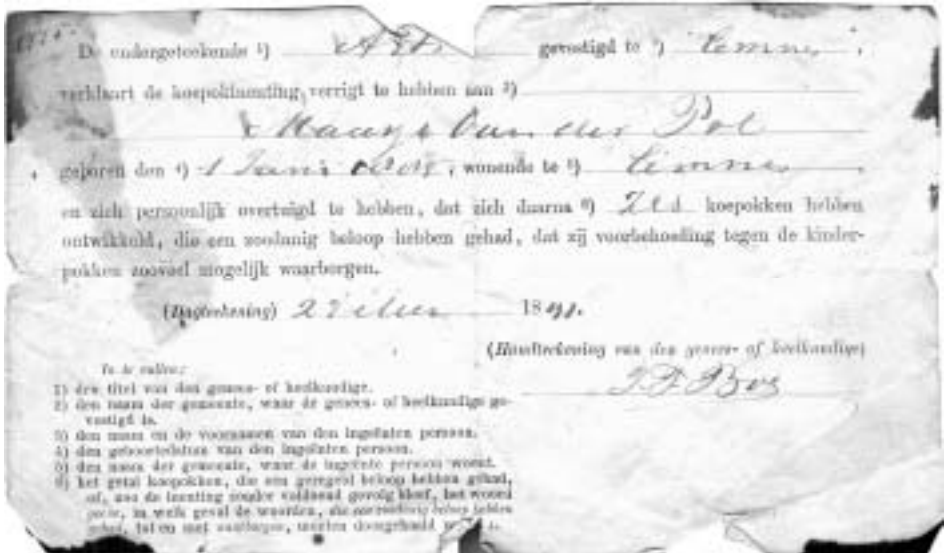 De ondergeteekende 1) Arts gevestigd te 2) Eemnes,
verklaart de koepokinenting verrigt te hebben aan 3)
van der Pol
geboren den 4) 1 , wonende te 5) Eemnes
en zich persoonlijk overtuigd te hebben, dat zich daarna 6) zes koepokken hebben
ontwikkeld, die een zoodanig beloop hebben gehad, dat zij voorbehoeding tegen de kinder-
pokken zooveel mogelijk waarborgen.
(Dagteekening) 2 18
(Handteekening van den genees- of heelkundige)
Bos
In te vullen:
1) den titel van den genees- of heelkundige.
2) den naam der gemeente, waar de genees- of heelkundige ge-
vestigd is.
3) den naam en de voornamen van den ingeënten persoon.
4) den geboortedatum van den ingeënten persoon.
5) den naam der gemeente, waar de ingeënte persoon woont.
6) het getal koepokken, die een geregeld beloop hebben gehad,
of, zoo de inenting zonder voldoend gevolg bleef, het woord
geene, in welk geval de woorden, die een zoodanig beloop hebben
gehad, tot en met waarborgen, moeten doorgehaald